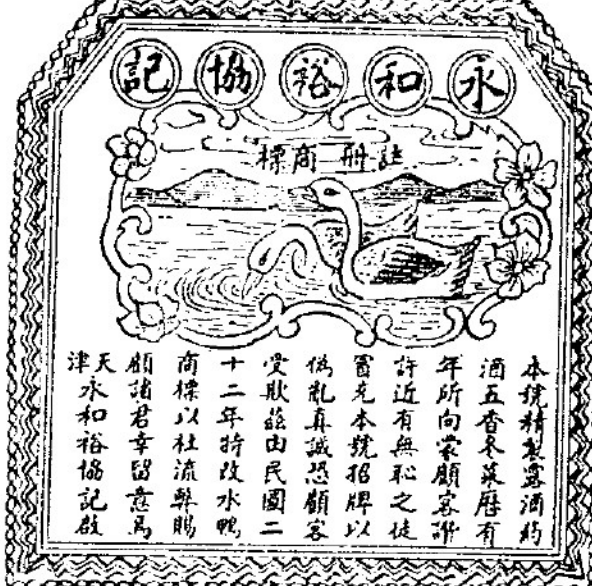 永和裕協記
註冊商標
本號精製露酒药
酒五香冬菜歷有
年所向蒙顧客所
許近有無恥之徒
冒充本號招牌以
偽亂真誠恐顧客
受欺茲由民國二
十二年特改水鴨
商標以杜流弊賜
顧諸君幸留意焉
天津永和裕協記啟